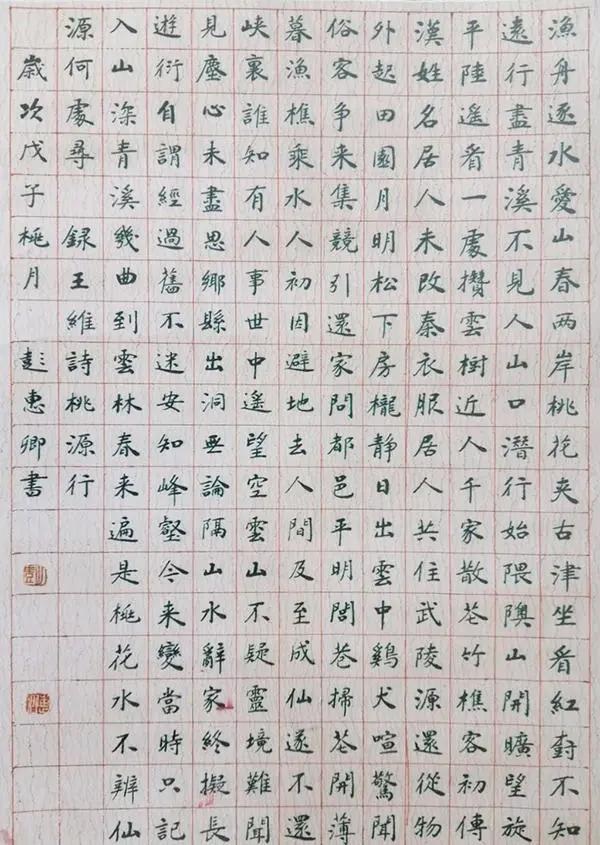 漁舟逐水愛山春两岸桃花夾古津坐看紅樹不知
遠行盡青溪不見人山口潛行始隈隩山開曠望旋
平陸遙看一處攢雲樹近人千家散花竹樵客初傳
漢姓名居人未改秦衣服居人共住武陵源還從物
外起田園月明松下房櫳靜日出雲中鷄犬喧驚聞
俗客争来集競引還家問都邑平明閭巷掃花開薄
暮漁樵乘水人初因避地去人間及至成仙遂不還
峡裏誰知有人事世中遙望空雲山不疑靈境難聞
見塵心未盡思鄉縣出洞無論隔山水辭家終擬長
遊衍自謂經過舊不迷安知峰壑今来變當時只記
入山深青溪幾曲到雲林春来遍是桃花水不辨仙
源何處尋 録王維詩桃源行
歲次戊子桃月 彭惠卿書